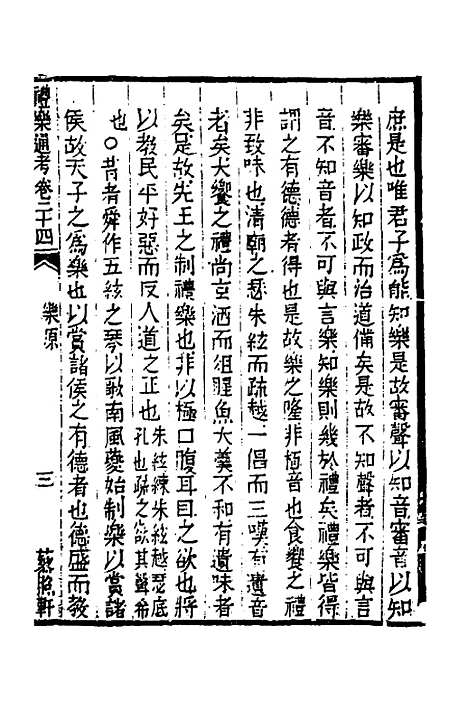 庶是也唯君子爲能知樂是故審聲以知音審音以知
樂審樂以知政而治道備矣是故不知聲者不可與言
音不知音者不可與言樂知樂則幾於禮矣禮樂皆得
謂之有德德者得也是故樂之隆非極音也食饗之禮
非致味也清廟之瑟朱絃而疏越一倡而三嘆有遺音
者矣大饗之禮尚玄酒而俎腥魚大羹不和有遺味者
矣是故先王之制禮樂也非以極口腹耳目之欲也將
以敎民平好惡而反人道之正也朱絃練朱絃越瑟底孔也疏之欲其聲希
也○昔者舜作五絃之琴以歌南風夔始制樂以賞諸
侯故天子之爲樂也以賞諸侯之有德者也德盛而敎
禮樂通考卷二十四
樂原
三
軒